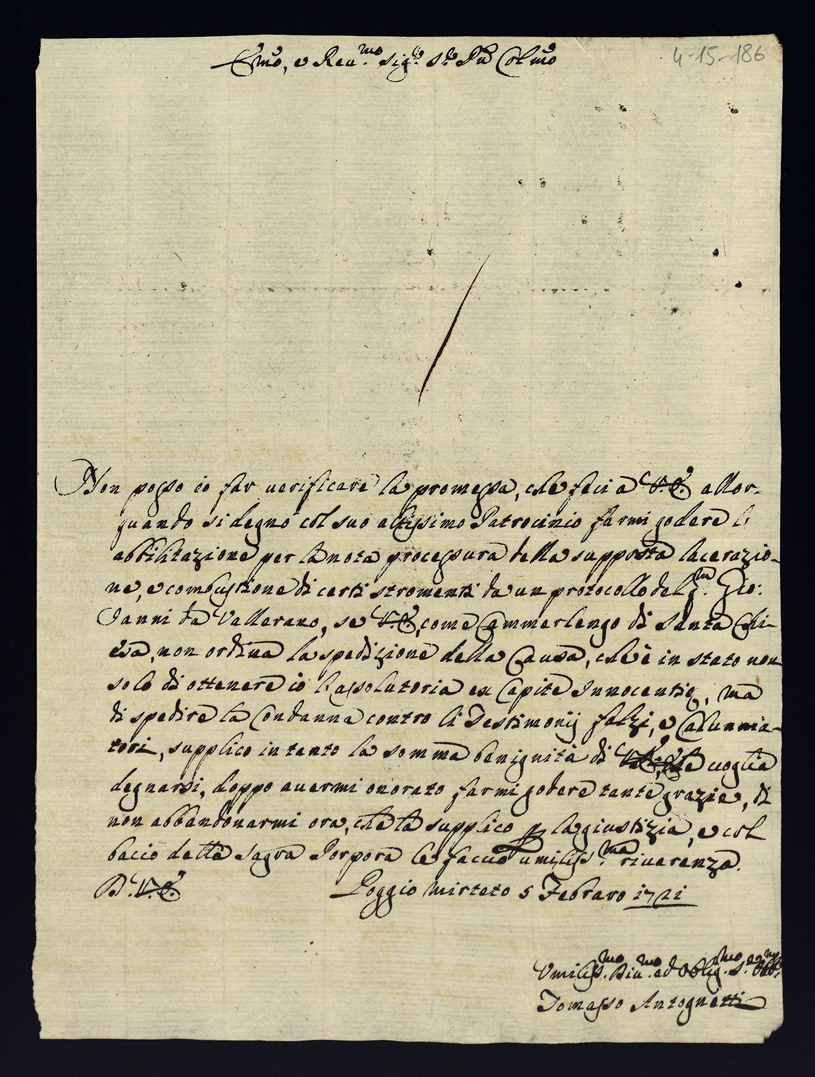 4-15-186
Emo, e Reu.mo Sig.re S.re Pñe Col.mo
Non posso io far uerificare la promessa, che feci a V.E. allor-
quando si degnò col suo altissimo Patrocinio farmi godere l'
abbilitazione per la nota processura della supposta lacerazio-
ne, e combustione di certi stromenti da un protocollo del q.m Gio:
Vanni da Vallerano, se V.E., come Cammerlengo di Santa Chi-
esa, non ordina la spedizione della Causa, che è in stato non
solo di ottenere io l'assolutoria ex Capite Innocentiæ, ma
di spedire la Condanna contro li Testimonij falzi, e Calunnia-
tori, supplico in tanto la somma benignità di V.E., che uoglia
degnarsi, doppo auermi onorato farmi godere tante grazie, di
non abbandonarmi ora, che la supplico per la giustizia, e col
bacio della Sagra Porpora le faccio umiliss.ma riuerenza.
D. V.E. Poggio Mirteto 5 Febraro 1721
Vmiliss.mo Diu.mo ed Oblig.mo S.re
Tomasso Antognetti